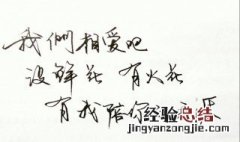 我們相爱吧
没鲜花 有火花
有我陪你
经验总结
jingyanzongjie.com